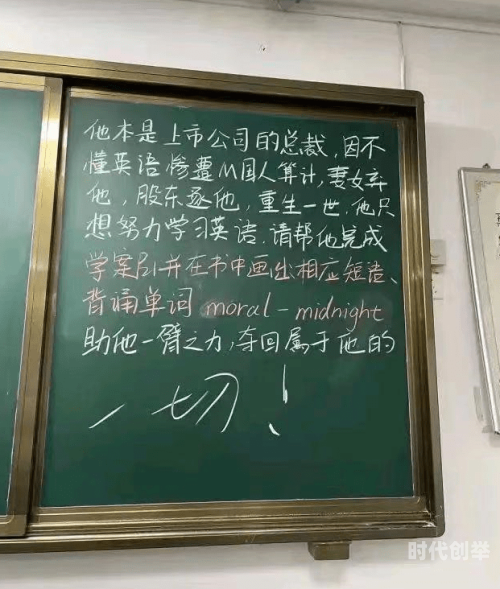 他本是上市公司的总裁，因不
懂英语惨遭外国人算计，妻女弃
他，股东逐他，重生一世，他只
想努力学习英语，请帮他完成
学案B1并在书中画出相应短语、
背诵单词 moral - midnight
助他一臂之力，夺回属于他的
一切！
时代创举